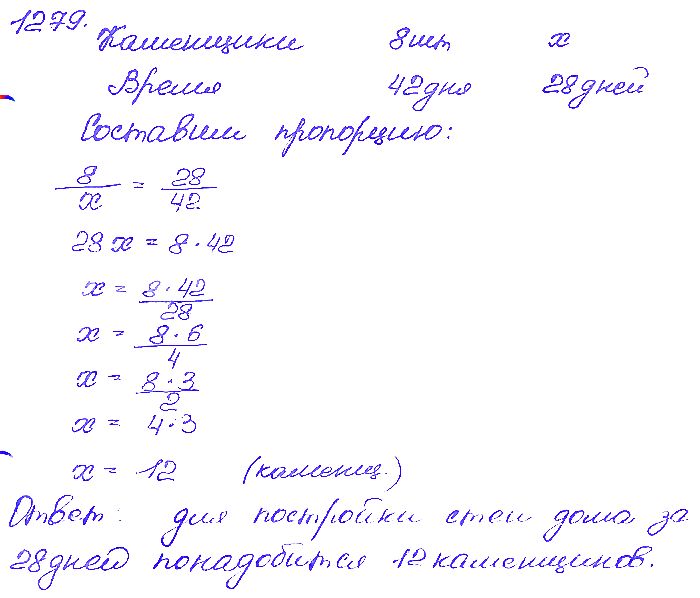 1279. Каменщики 8шт x
Время 42дня 28дней
Составим пропорцию:
8/x = 28/42
28x = 8·42
x = 8·42/28
x = 8·6/4
x = 8·3/2
x = 4·3
x = 12 (каменщ.)
Ответ: для постройки стен дома за
28дней понадобится 12 каменщиков.